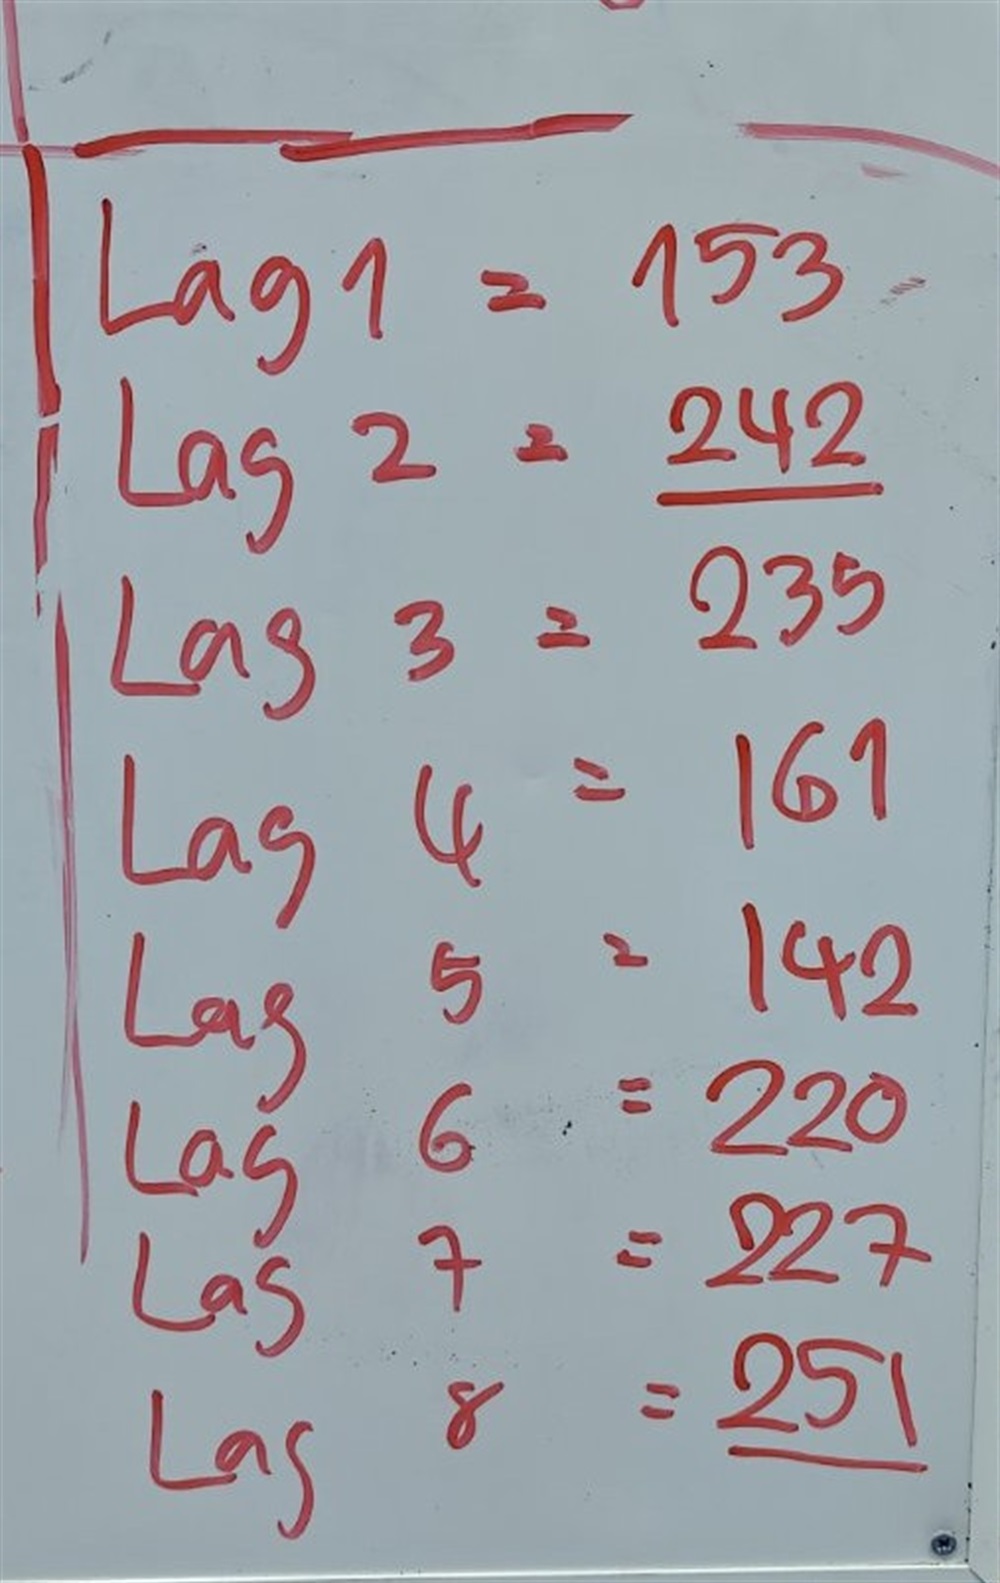 Lag 1 = 153
Lag 2 = 242
Lag 3 = 235
Lag 4 = 161
Lag 5 = 142
Lag 6 = 220
Lag 7 = 227
Lag 8 = 251